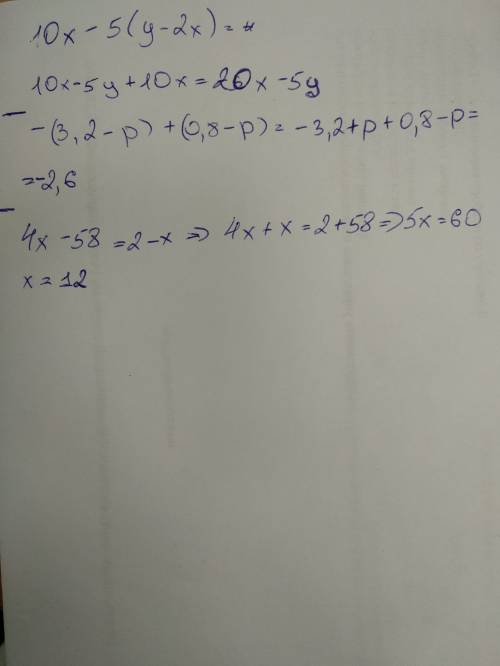 10x - 5(y-2x) =
10x-5y+10x = 20x -5y
-(3,2-p) +(0,8-p) = -3,2+p+0,8-p=
=-2,6
4x -58 =2-x => 4x+x=2+58=>5x=60
x=12